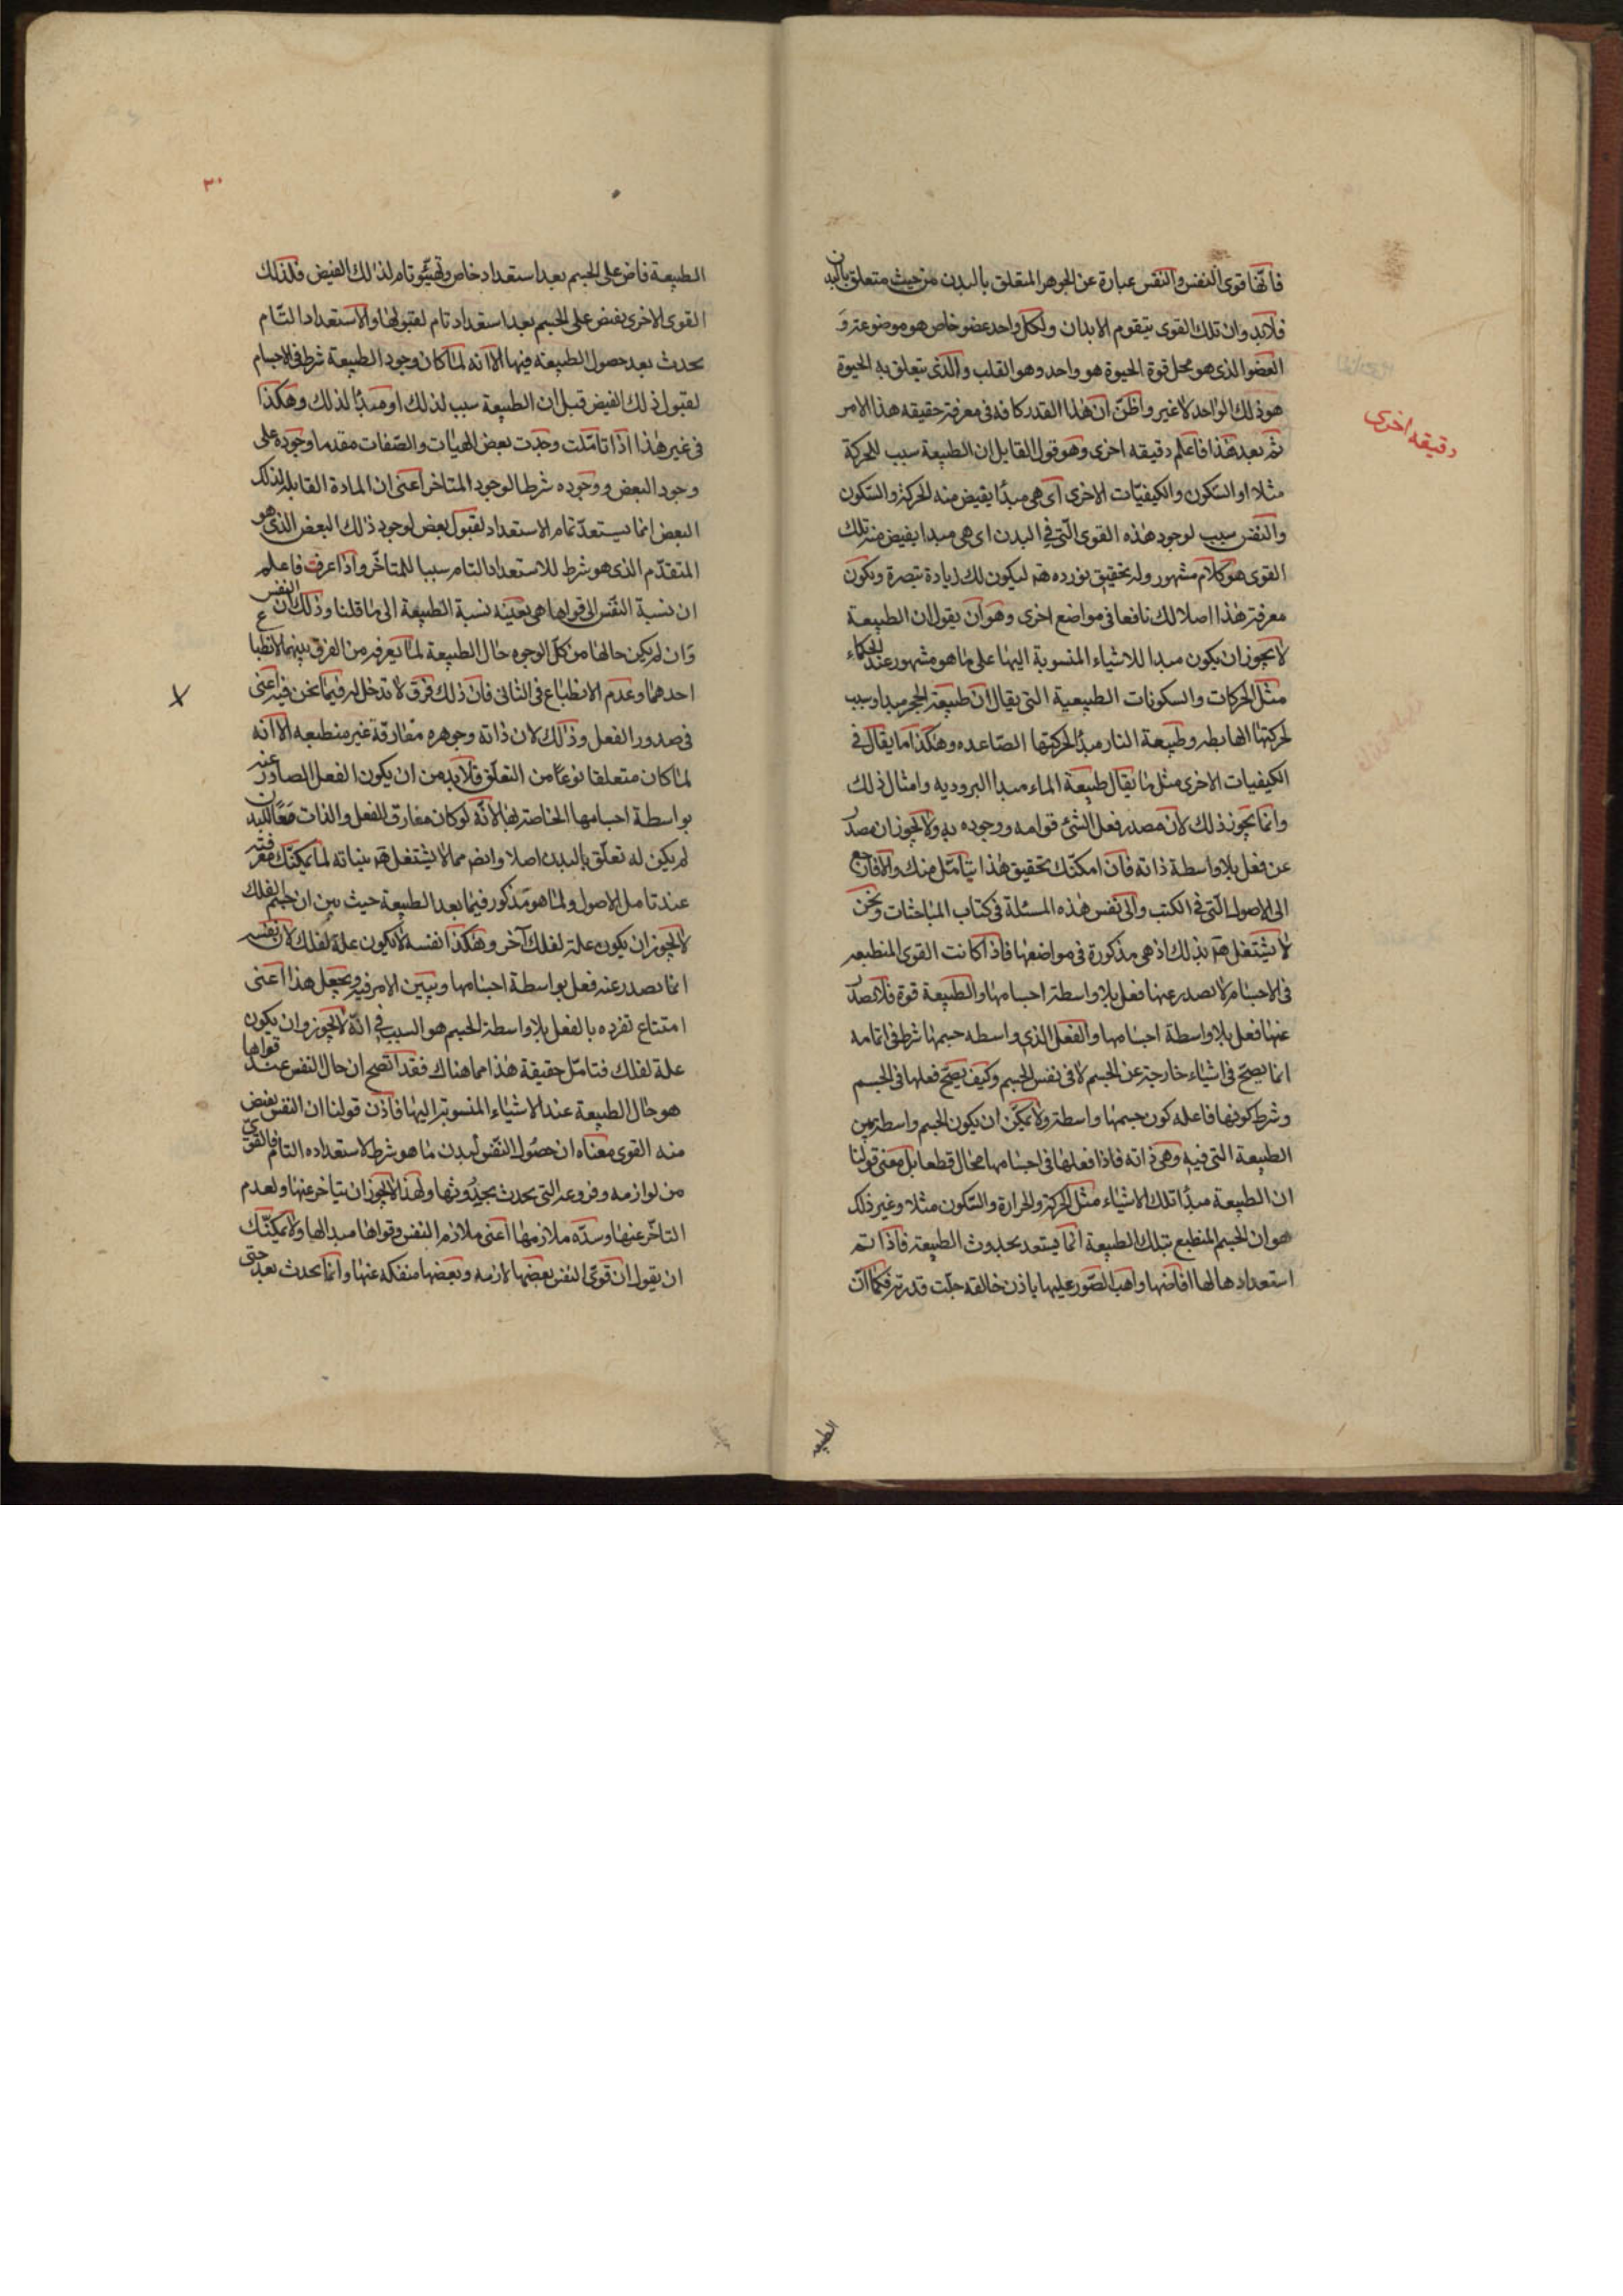 فانها قوى النفس والنفس عبارة عن الجوهر المتعلق بالبدن من حيث متعلق بالبدن
فلابد وان تلك القوى يتقوم الابدان ولكل واحد عضو خاص هو موضوعه و
العضو الذى هو محل قوة الحيوة هو واحد وهو القلب والذى يتعلق به الحيوة
هو ذلك الواحد لا غير واظن ان هذا القدر كافه فى معرفة حقيقه هذا الامر
دقيقه اخرى
ثم بعد هذا فاعلم دقيقه اخرى وهو قول القايل ان الطبيعة سبب للحركة
مثلا او السكون والكيفيات الاخرى اى هى مبدا يفيض منه الحركة والسكون
والنفس سبب لوجود هذه القوى التى فى البدن اى هى مبدا يفيض منه تلك
القوى هو كلام مشهور وله تحقيق نورده ليكون لك زيادة تبصرة ويكون
معرفة هذا اصلا لك نافعا فى مواضع اخرى وهو ان يقول ان الطبيعة
لا يجوز ان يكون مبدا للاشياء المنسوبة اليها على ما هو مشهور عند الحكماء
مثل الحركات والسكونات الطبيعية التى يقال ان طبيعة الحجر مبدا وسبب
لحركتها الهابطه وطبيعة النار مبدا لحركتها الصاعده وهكذا ما يقال فى
الكيفيات الاخرى مثل ما يقال طبيعة الماء مبدا البروديه وامثال ذلك
وانما يجوز ذلك لان مصدر فعل الشئ قوامه ووجوده به ولا يجوز ان يصدر
عن فعل بلا واسطة ذاته فان امكنك تحقيق هذا بتامل منك والا فارجع
الى الاصول التى فى الكتب والى نفس هذه المسئلة فى كتاب المباحثات ونحن
لا يشتغل بذلك اذ هى مذكورة فى مواضعها فاذا كانت القوى المنطبعه
فى الاجسام لا يصدر عنها فعل بلا واسطة اجسامها والطبيعة قوة فلا يصدر
عنها فعل بلا واسطة اجسامها والفعل الذى واسطه جسمها شرط فى اتمامه
انما يصح فى اشياء خارجة عن الجسم لا فى نفس الجسم وكيف يصح فعلها فى الجسم
وشرط كونها فاعله كون جسمها واسطة ولا يمكن ان يكون الجسم واسطة بين
الطبيعة التى فيه وهى ذاته فاذا فعلها فى اجسامها محال قطعا بل معنى قولنا
ان الطبيعة مبدا تلك الاشياء مثل الحركة والحرارة والسكون مثلا وغير ذلك
هو ان الجسم المنطبع بتلك الطبيعة انما يستعد بحدوث الطبيعة فاذا تم
استعدادها لها افاضها واهب الصور عليها باذن خالقه جلت قدرته فكما ان
الطبيعه
٣٠
الطبيعة فاض على الجسم بعد استعداد خاص وتهيئو تام لذلك الفيض فكذلك
القوى الاخرى يفيض على الجسم بعد استعداد تام لقبولها والاستعداد التام
يحدث بعد حصول الطبيعه فيها الا انه لما كان وجود الطبيعة شرط فى الاجسام
لقبول ذلك الفيض قبل ان الطبيعة سبب لذلك او مبدا لذلك وهكذا
فى غير هذا اذا تاملت وجدت بعض الهيات والصفات مقدما وجوده على
وجود البعض ووجوده شرطا لوجود المتاخر اعنى ان المادة القابله لذلك
البعض انما يستعد تمام الاستعداد لقبول بعض لوجود ذلك البعض الذى هو
المتقدم الذى هو شرط للاستعداد التام سببا للمتاخر واذا عرفت فاعلم
ان نسبة النفس الى قواها هى بعينه نسبة الطبيعة الى ما قلنا وذلك ان النفس
وان لم يكن حالها من كل الوجوه حال الطبيعة لما يعرفه من الفرق بينهما لانطباع
احدهما وعدم الانطباع فى الثانى فان ذلك فرق لا تدخل له فيما نحن فيه اعنى
فى صدور الفعل وذلك لان ذاته وجوهره مفارقة غير منطبعه الا انه
لما كان متعلقا نوعا من التعلق فلابد من ان يكون الفعل الصادر عنه
بواسطة اجسامها الخاصة لها لانه لو كان مفارق الفعل والذات معا للبدن
لم يكن له تعلق بالبدن اصلا وايض مما لا يشتغل بنياته لما يمكنك معرفته
عند تامل الاصول ولما هو مذكور فيما بعد الطبيعة حيث بين ان جسم الفلك
لا يجوز ان يكون علة لفلك آخر وهكذا نفسه لا يكون علة لفلك لان نفسه
انما يصدر عنه فعل بواسطة اجسامها ويبين الامر فيه ويجعل هذا اعنى
امتناع تفرده بالفعل بلا واسطة الجسم هو السبب فى انه لا يجوز وان يكون
علة لفلك فتامل حقيقة هذا مما هناك فقد اتضح ان حال النفس عند قواها
هو حال الطبيعة عند الاشياء المنسوبة اليها فاذن قولنا ان النفس يفيض
منه القوى معناه ان حصول النفس لبدن ما هو شرط لاستعداده التام فالقوى
من لوازمه وفروعه التى يحدث بحدوثها ولهذا لا يجوز ان يتاخر عنها ولعدم
التاخر عنها وسده ملازمها اعنى ملازم النفس وقواها مبدالها ولا يمكنك
ان يقول ان قوى النفس بعضها لازمه وبعضها منفكه عنها وانما يحدث بعد حتى